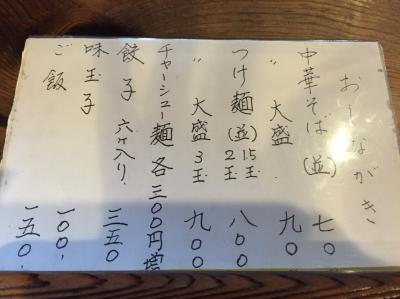 おしながき
中華そば(並) 七〇
〃 大盛 九〇
つけ麺(並) 15玉 2玉 八〇〇
〃 大盛 3玉 九〇〇
チャーシュー麺 各三〇〇円増
餃子 六ヶ入り 三五〇
味玉子 一〇〇
ご飯 一五〇